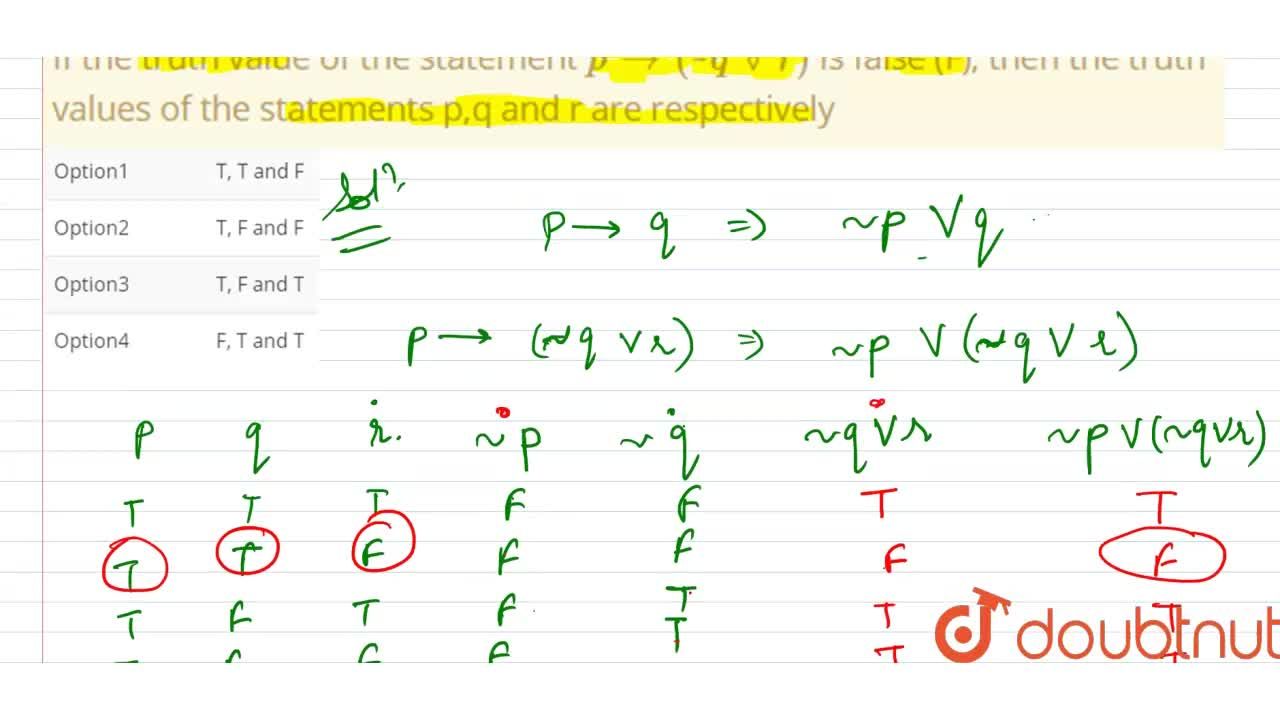 If the truth value of the statement p → (~q ∨ r) is false (F), then the truth
values of the statements p,q and r are respectively
Option1 T, T and F
Option2 T, F and F
Option3 T, F and T
Option4 F, T and T
Solⁿ.
p → q ⇒ ~p ∨ q
p → (~q ∨ r) ⇒ ~p ∨ (~q ∨ r)
p q r. ~p ~q ~q ∨ r ~p ∨ (~q ∨ r)
T T T F F T T
T T F F F F F
T F T F T T T
T F F F T T T
doubtnut